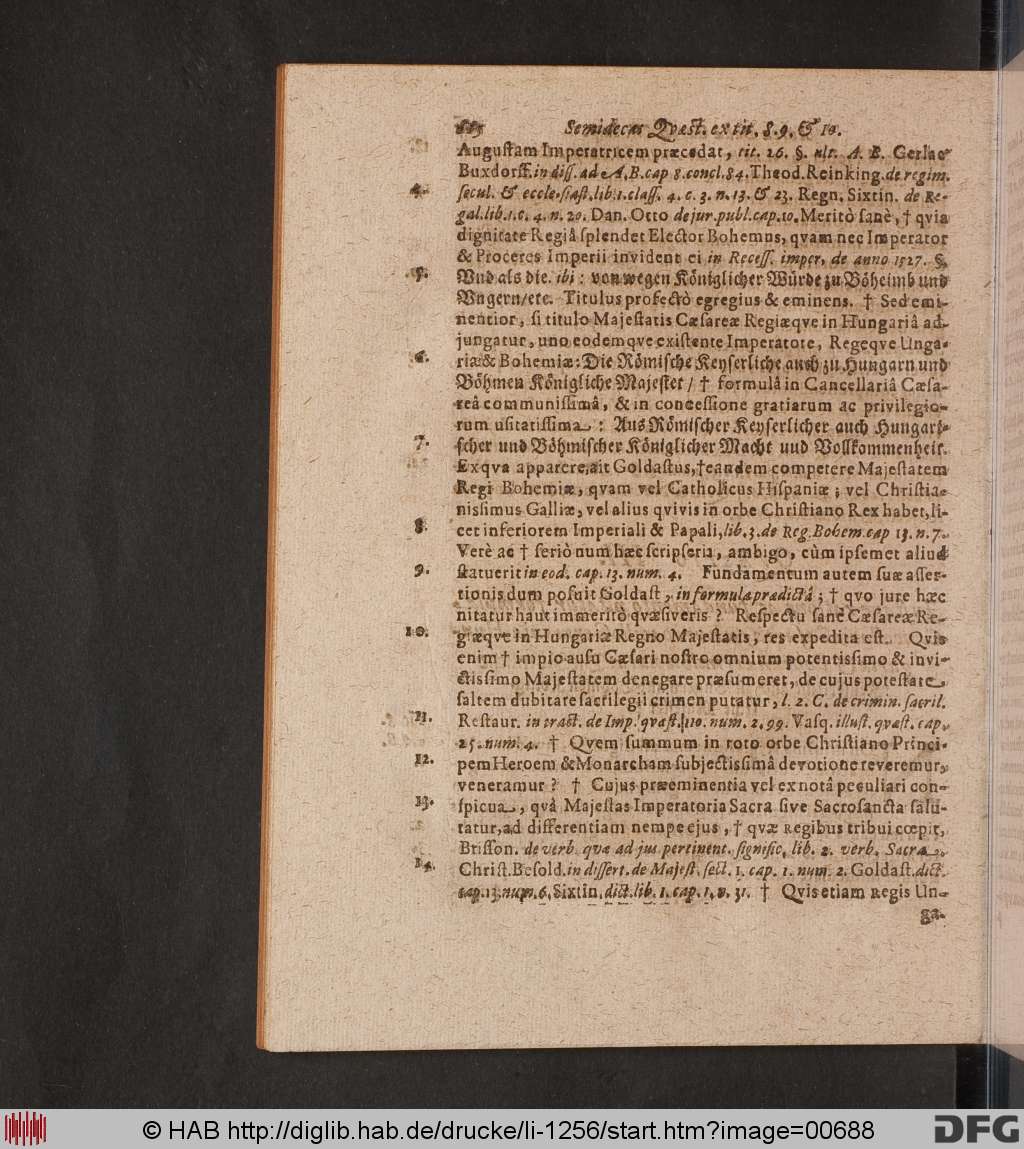 Semidecas Qvæst. ex tit. 8. 9. & 10.
Augustam Imperatricem præcedat, tit. 26. §. ult. A. B. Gerlac
Buxdorff. in diss. ad A. B. cap 8. concl. 84. Theod. Reinking. de regim.
4. secul. & eccle-siast. lib. 1. class. 4. c. 3. n. 13. & 23. Regn. Sixtin. de Re-
gal. lib. 1. c. 4. n. 20. Dan. Otto de jur. publ. cap. 10. Meritò sanè, † qvia
dignitate Regiâ splendet Elector Bohemus, qvam nec Imperator
& Proceres Imperii invident ei in Recess. imper. de anno 1527. §.
5. Und als die. ibi: von wegen Königlicher Würde zu Böheimb und
Ungern/etc. Titulus profectò egregius & eminens. † Sed emi-
nentior, si titulo Majestatis Cæsareæ Regiæqve in Hungariâ ad-
jungatur, uno eodemqve existente Imperatore, Regeqve Unga-
6. riæ & Bohemiæ: Die Römische Keyserliche auch zu Hungarn und
Böhmen Königliche Majestet / † formulâ in Cancellariâ Cæsa-
reâ communissimâ, & in concessione gratiarum ac privilegio-
rum usitatissima: Aus Römischer Keyserlicher auch Hungari-
7. scher und Böhmischer Königlicher Macht uud Vollkommenheit.
Ex qva apparere, ait Goldastus, † eandem competere Majestatem
Regi Bohemiæ, qvam vel Catholicus Hispaniæ; vel Christia-
nissimus Galliæ, vel alius qvivis in orbe Christiano Rex habet, li-
8. cet inferiorem Imperiali & Papali, lib. 3. de Reg. Bohem. cap 13. n. 7.
Verè ac † seriò num hæc scripserit, ambigo, cùm ipsemet aliud
9. statuerit in eod. cap. 13. num. 4. Fundamentum autem suæ asser-
tionis dum posuit Goldast, in formula prædictâ; † qvo jure hæc
nitatur haut immeritò qvæsiveris? Respectu sanè Cæsareæ Re-
10. giæqve in Hungariæ Regno Majestatis, res expedita est. Qvis
enim † impio ausu Cæsari nostro omnium potentissimo & invi-
ctissimo Majestatem denegare præsumeret, de cujus potestate
saltem dubitare sacrilegii crimen putatur, l. 2. C. de crimin. sacril.
11. Restaur. in tract. de Imp. qvæst. 110. num. 2. 99. Vasq. illust. qvæst. cap.
25. num. 4. † Qvem summum in toto orbe Christiano Princi-
12. pem Heroem & Monarcham subjectissimâ devotione reveremur,
veneramur? † Cujus præeminentia vel ex notâ peculiari con-
13. spicua, qvâ Majestas Imperatoria Sacra sive Sacrosancta salu-
tatur, ad differentiam nempe ejus, † qvæ Regibus tribui cœpit,
Brisson. de verb. qvæ ad jus pertinent. signific. lib. 2. verb. Sacra.
14. Christ. Besold. in dissert. de Majest. sect. 1. cap. 1. num. 2. Goldast. dict.
cap. 13. num. 6. Sixtin. dict. lib. 1. cap. 1. n. 31. † Qvis etiam Regis Un-
ga-
© HAB http://diglib.hab.de/drucke/li-1256/start.htm?image=00688
DFG